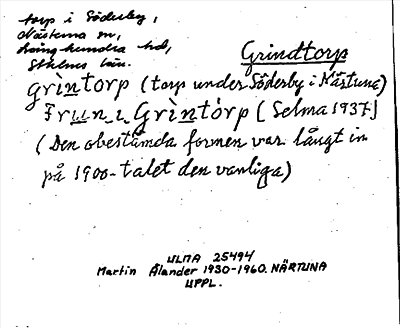 torp i Söderby,
Närtuna sn,
Långhundra hd,
Sthlms län.
Grindtorp
grìntorp (torp under Söderby i Närtuna)
Frun i Grìntórp [Selma 1937]
(Den obestämda formen var långt in
på 1900-talet den vanliga)
ULMA 25494
Martin Ålander 1930-1960. NÄRTUNA
UPPL.